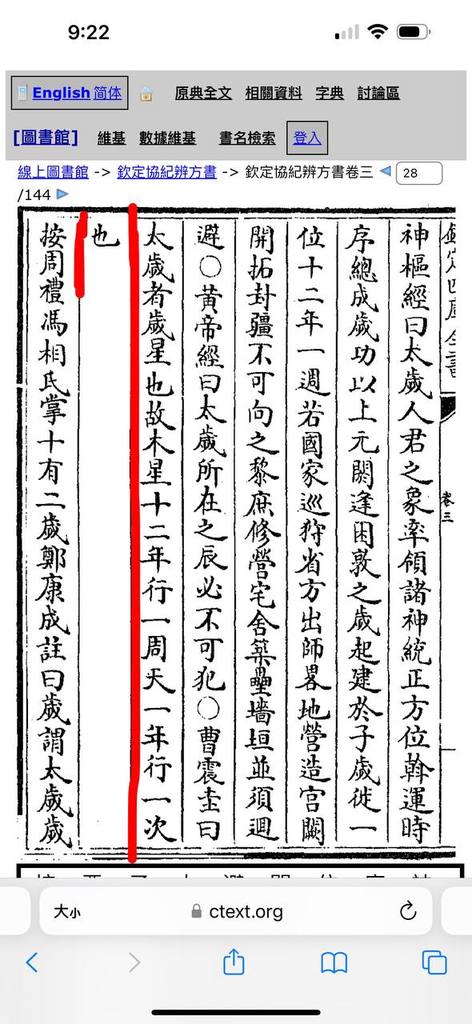 9:22
English 简体
原典全文 相關資料 字典 討論區
[圖書館] 維基 數據維基 書名檢索 登入
線上圖書館 -> 欽定協紀辨方書 -> 欽定協紀辨方書卷三 28
/144
欽定四庫全書
卷三
神樞經曰太歲人君之象率領諸神統正方位斡運時
序總成歲功以上元閼逢困敦之歲起建於子歲徙一
位十二年一週若國家巡狩省方出師畧地營造宮闕
開拓封疆不可向之黎庶修營宅舍築壘墻垣並須迴
避○黃帝經曰太歲所在之辰必不可犯○曹震圭曰
太歲者歲星也故木星十二年行一周天一年行一次
也
按周禮馮相氏掌十有二歲鄭康成註曰歲謂太歲歲
大小 ctext.org